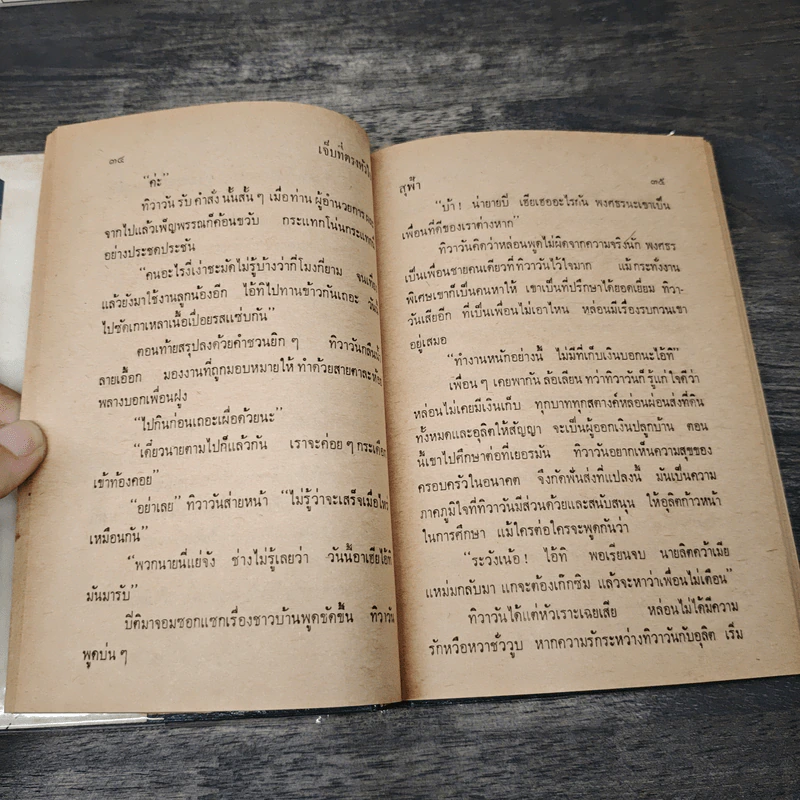 ๓๔
เจ็บที่ตรงหัวใ
“ค่ะ”
ทิวาวัน รับ คำสั่ง นั้นสั้น ๆ เมื่อท่าน ผู้อำนวยการ
จากไปแล้วเพ็ญพรรณก็ค้อนขวับ กระแทกโน่นกระแทกนี่
อย่างประชดประชัน
“คนอะไรงี่เง่าชะมัดไม่รู้บ้างว่ากี่โมงกี่ยาม จนเที่ยง
แล้วยังมาใช้งานลูกน้องอีก ไอ้ทิไปทานข้าวกันเถอะ วันนี้
ไปซัดเกาเหลาเนื้อเปื่อยรสแซ่บกัน”
ตอนท้ายสรุปลงด้วยคำชวนยิก ๆ ทิวาวันกลืนน้ำ
ลายเอื้อก มองงานที่ถูกมอบหมายให้ ทำด้วยสายตาละห้อย
พลางบอกเพื่อนฝูง
“ไปกินก่อนเถอะเผื่อด้วยนะ”
“เดี๋ยวนายตามไปก็แล้วกัน เราจะค่อย ๆ กระเดือก
เข้าท้องคอย”
“อย่าเลย” ทิวาวันส่ายหน้า “ไม่รู้ว่าจะเสร็จเมื่อไหร่
เหมือนกัน”
“พวกนายนี่แย่จัง ช่างไม่รู้เลยว่า วันนี้อาเฮียไอ้ทิ
มันมารับ”
ปิติมาจอมซอกแซกเรื่องชาวบ้านพูดขัดขึ้น ทิวาวัน
พูดบ่น ๆ
สุฟ้า
๓๕
“บ้า ! น่าอายบี๋ เฮียเฮออะไรกัน พงศธรนะเขาเป็น
เพื่อนที่ดีของเราต่างหาก”
ทิวาวันคิดว่าหล่อนพูดไม่ผิดจากความจริงนัก พงศธร
เป็นเพื่อนชายคนเดียวที่ทิวาวันไว้ใจมาก แม้ กระทั่งงาน
พิเศษเขาก็เป็นคนหาให้ เขาเป็นที่ปรึกษาได้ยอดเยี่ยม ทิวา-
วันเสียอีก ที่เป็นเพื่อนไม่เอาไหน หล่อนมีเรื่องรบกวนเขา
อยู่เสมอ
“ทำงานหนักอย่างนี้ ไม่มีที่เก็บเงินบอกนะไอ้ทิ”
เพื่อน ๆ เคยพากัน ล้อเลียน ทว่าทิวาวันก็ รู้แก่ ใจดีว่า
หล่อนไม่เคยมีเงินเก็บ ทุกบาททุกสตางค์หล่อนผ่อนส่งที่ดิน
ทั้งหมดและอุลิตให้สัญญา จะเป็นผู้ออกเงินปลูกบ้าน ตอน
นี้เขาไปศึกษาต่อที่เยอรมัน ทิวาวันอยากเห็นความสุขของ
ครอบครัวในอนาคต จึงกัดฟันส่งที่แปลงนี้ มันเป็นความ
ภาคภูมิใจที่ทิวาวันมีส่วนด้วยและสนับสนุน ให้อุลิตก้าวหน้า
ในการศึกษา แม้ใครต่อใครจะพูดกันว่า
“ระวังเน้อ ! ไอ้ทิ พอเรียนจบ นายลิตคว้าเมีย
แหม่มกลับมา แกจะต้องเก๊กซิม แล้วจะหาว่าเพื่อนไม่เตือน”
ทิวาวันได้แต่หัวเราะเฉยเสีย หล่อนไม่ได้มีความ
รักหวือหวาชั่ววูบ หากความรักระหว่างทิวาวันกับอุลิต เริ่ม